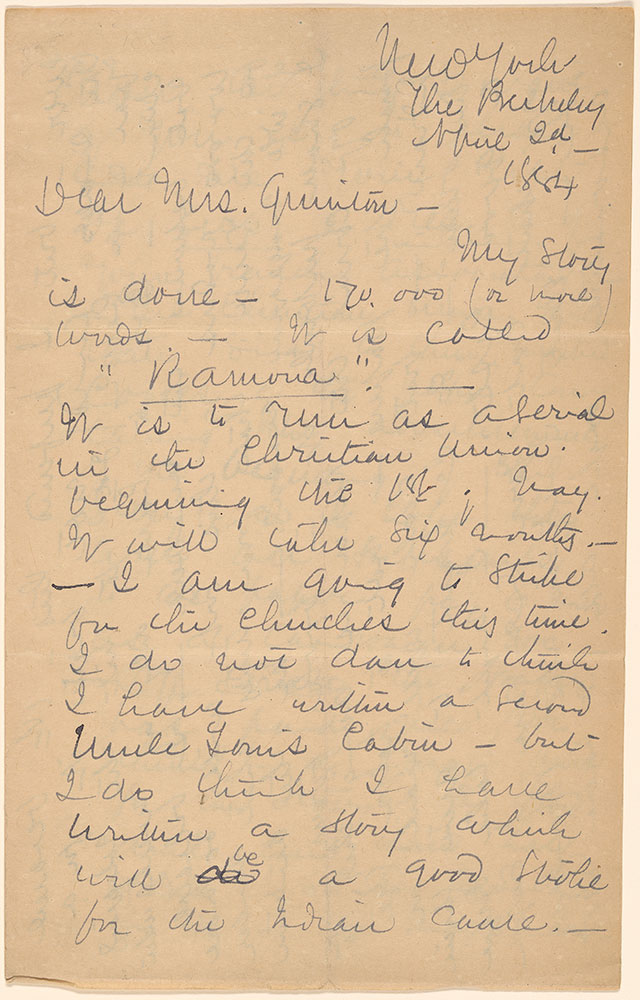 New York
The Berkeley
April 2d —
1884
Dear Mrs. Quinton —
My Story
is done — 170.000 (or more)
words. — It is called
"Ramona". —
It is to run as a Serial
in the Christian Union.
beginning the 1st of May.
It will take Six months. —
— I am going to Strike
for the Churches this time.
I do not dare to think
I have written a Second
Uncle Tom's Cabin — but
I do think I have
written a story which
will do be a good Stroke
for the Indian Cause. —